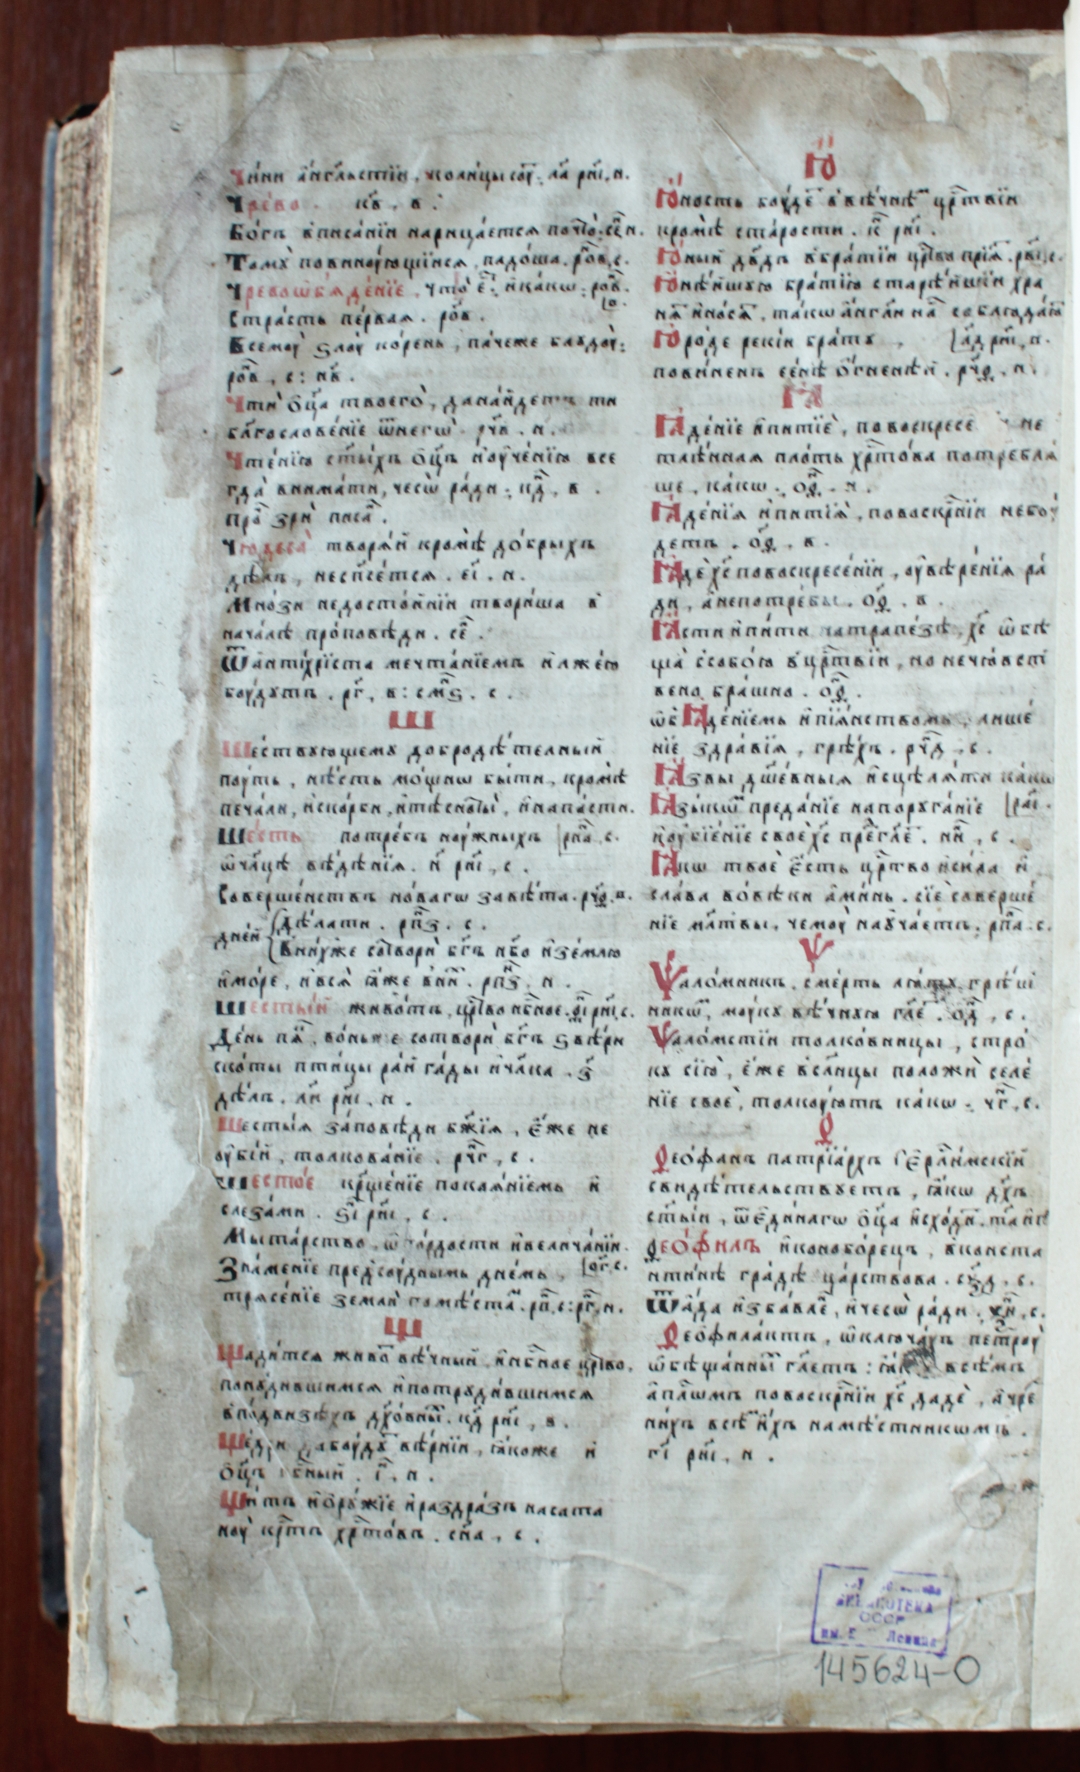 Чи́нни а҆́нгльстїи, околи́цы соу́т. ла҃ рні, н.
Чре́во. кв҃, в:
Бо́гъ в писа́нїи нарица́ется почто̀. сл҃, н.
Томꙋ̀ повиноую́щїися, падо́ша. ров҃, с.
Чревоѡб̾яде́нїе, что̀ е҆́, и҆ ка́кѡ: ров҃.
Стра́сть пе́рвая. роѵ.
Всемоу̀ ѕлоу̀ ко́рень, па́чеже блꙋдоу̀:
ров҃, с: нв҃.
Чтѝ ѻ҆ц҃а твоего̀, да на́йдетъ ти
бл҃гослове́нїе ѿ негѡ̀. рч҃в, н.
Чте́нїю ст҃ы́хъ ѻ҆ц҃ъ и҆ оу҆че́нїю все
гда̀ внима́ти, чесѡ̀ ра́ди: кд҃, в.
про зрѝ писа.
Чюдеса̀ творя́й кромѣ̀ до́брыхъ
дѣ́лъ, не сп҃се́тся. є҃і. н.
Мно́зи недосто́йнїи твори́ша в
нача́лѣ про́повѣди. се҃.
Ѿ а҆нтїхрі́ста мечта́нїемъ и҆ лже́ю
боу́дꙋтъ. рг҃, в: смѕ҃. с.
Ш
Ше́ствꙋющемꙋ добродѣ́телный
поу́ть, нѣ́сть мо́щнѡ бы́ти, кромѣ̀
печа́ли, и҆ ско́рби, и҆ тѣсноты̀, и҆ напа́сти.
Ше́сть потре́бъ ноу́жныхъ рпа҃. с.
ѿ чл҃цѣ вѣ́дѣнїя. н҃ рні, с.
Соверше́нствъ но́вагѡ завѣ́та. рчѳ҃. в.
дне́й дѣ́лати. рпз҃. с.
В ни́хже сотворѝ бг҃ъ нб҃о и҆ зе́млю
и҆ мо́ре, и҆ вся̀ ꙗ҆́же в ни. рпз҃. н.
Шесты́й живо́тъ, црт҃во нбн҃ое. ѳ҃і рні, с.
День па, во́ньже сотворѝ бг҃ъ ѕвѣ́ри
ско́ты пти́цы ра́й га́ды и҆ чл҃ка. з҃
дѣ́лъ. ли҃ рні, н.
Шесты́я за́повѣди бж҃їя, є҆́же не
оу҆бі́й, толкова́нїе. рчг҃, с.
Шесто́е кр҃ще́нїе покая́нїемъ и
слеза́ми. ѕ҃і рні, с.
Мыта́рство, ѿ го́рдости и҆ велича́нїи.
Зна́менїе пред̾соу́днымъ дне́мъ, ѳг҃. с.
трясе́нїе землѝ по мѣ́ста. рп҃, с: рг҃, н.
Щ
Щади́тся живо вѣ́чный, и҆ нбн҃ое црт҃во,
понꙋди́вшимся и҆ потрꙋди́вшимся
в по́двизѣхъ дх҃о́вны. кд҃ рні, в.
да боу́дꙋ вѣ́рнїи, ꙗ҆́коже и
г҃, н.
Щи́тъ и҆ ѻ҆рꙋ́жїе и҆ раздра́зъ на сата
ноу̀ кр҃тъ хр҃то́въ. сна҃, с.
Ю
Ю҆́ность боу́де в вѣ́чнѣ црт҃вїи
кромѣ̀ ста́рости. к҃ рні.
Ю҆́ный дв҃дъ в бра́тїи црт҃во прїя.
Ю҆нѣ́йшꙋю бра́тїю старѣ́йшїи хра
ня и҆ но́ся, та́кѡ а҆́нгли на со благода́
Ю҆ро́де реки́й бра́тꙋ, ад҃ рні, н.
пови́ненъ ге́нѣ ѻ҆́гненѣй. рчѳ҃, н.
Ꙗ
Ꙗ҆де́нїе и҆ питїѐ, по воскресе не
тлѣ́нная пло́ть хр҃то́ва потребля́
ше, ка́кѡ. оѳ҃. н.
Ꙗ҆де́нїя и҆ питїя̀, по воскр҃нїи не боу́
детъ. оѳ҃. в.
Ꙗ҆дѐ х҃с по воскресе́нїи, оу҆вѣре́нїя ра́
ди, а҆ не потре́бы. оѳ҃. в.
Ꙗ҆́сти и҆ пи́ти на трапе́зѣ, х҃с ѡ҆бѣ
ща̀ с собо́ю в црт҃вїи, но не чю́вст
вено бра́шно. оѳ҃.
ѡб̾ꙗде́нїемъ и҆ пїя́нствомъ, лише́
нїе здра́вїя, грѣ́хъ. рчд҃, с.
Ꙗ҆́звы дш҃е́вныя и҆сцѣля́ти ка́кѡ
Ꙗ҆зы́кѡ преда́нїе на порꙋга́нїе раі҃.
и҆ оу҆бїе́нїе своѐ х҃с пре́гле. нн҃, с.
Ꙗ҆́кѡ твоѐ є҆́сть црт҃во и҆ си́ла и
сла́ва во вѣ́ки а҆ми́нь. сїѐ соверше́
нїе мл҃твы, чемоу̀ наꙋча́етъ. рпа҃. с.
Ѱ
Ѱало́мникъ, сме́рть лю́тꙋ грѣ́ш
никѡ, моу́кꙋ вѣ́чнꙋю гле. од҃, с.
Ѱало́мстїи толко́вницы, стро́
кꙋ сїю̀, є҆́же в сл҃нцы положѝ селе́
нїе своѐ, толкоу́ютъ ка́кѡ. чг҃, с.
Ѳ
Ѳео́фанъ патрїа́рхъ і҆єрл҃и́мскїй
свидѣ́тельствꙋетъ, ꙗ҆́кѡ дх҃ъ
ст҃ы́й, ѿ є҆ди́нагѡ ѻ҆ц҃а и҆схо́ди.
Ѳео́филъ и҆конобо́рецъ, в конста
нти́нѣ гра́дѣ ца́рствова. с.
Ѿ а҆́да и҆зба́вле, и҆ чесѡ̀ ра́ди. хн҃, с.
Ѳеофила́ктъ, ѡ҆ ключа́хъ петроу̀
ѡ҆бѣща́нны гл҃етъ: всѣ́мъ
а҆пл҃ѡмъ по воскр҃нїи х҃с дадѐ, а҆ чре
ни́хъ всѣ и҆́хъ намѣ́стникѡмъ.
гі҃ рні, н.
БИБЛИОТЕКА
СССР
им. Ленина
145624-О